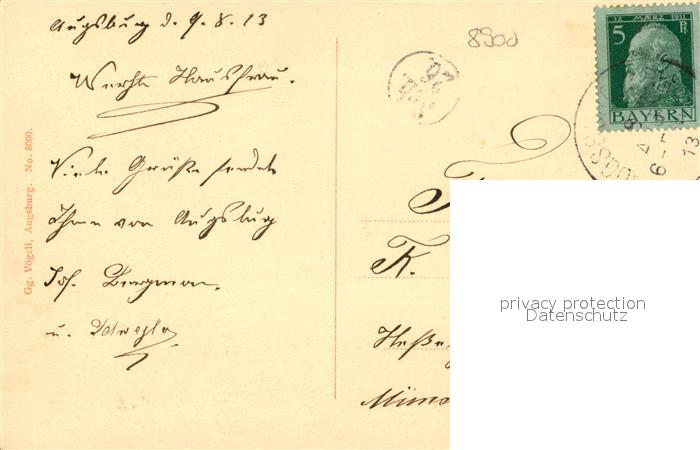 Augsburg d. 9. 8. 13
Werthe Hausfrau.
Viele Grüße sendet
Ihnen von Augsburg
Jos. Bergman.
u.
Gg. Vögeli, Augsburg. No. 8009.
12 MÄRZ 1911
5 Pf
BAYERN
13
K.
privacy protection
Datenschutz